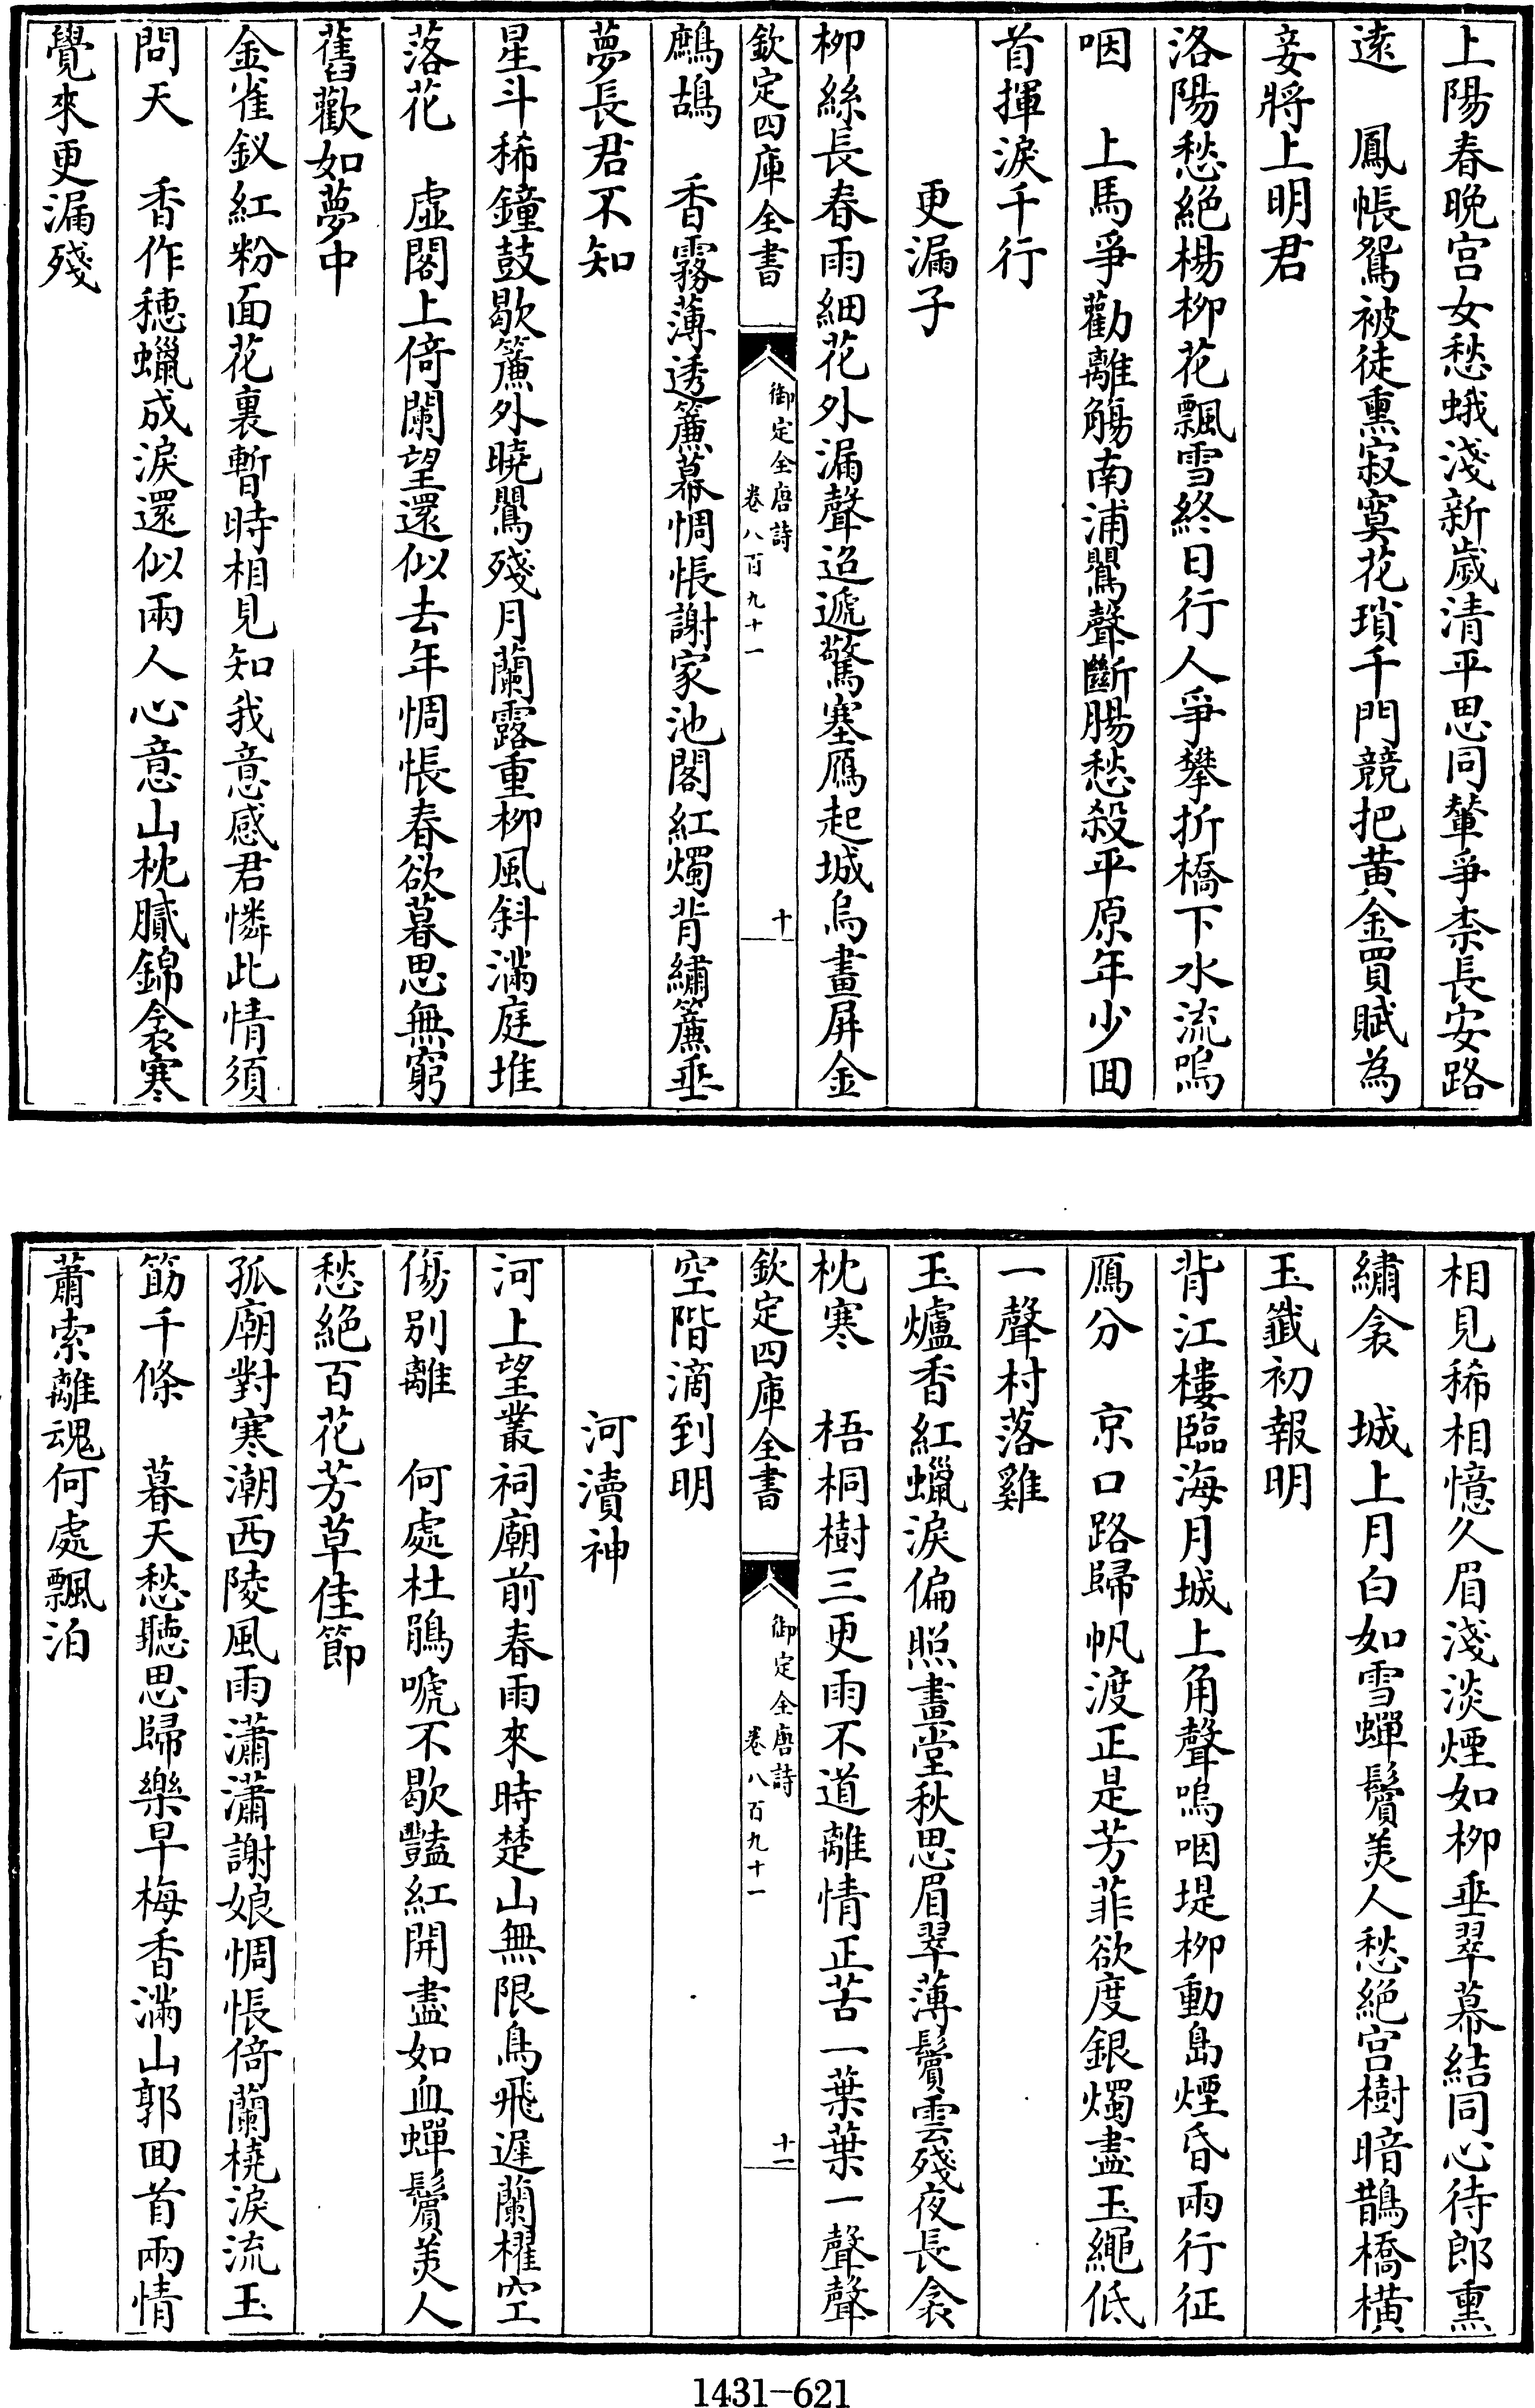 上陽春晚宫女愁蛾淺新歲清平思同輦爭柰長安路
遠　鳳帳鴛被徒熏寂寞花瑣千門競把黄金買賦為
妾將上明君
洛陽愁絕楊柳花飄雪終日行人爭攀折橋下水流嗚
咽　上馬爭勸離觴南浦鸎聲斷腸愁殺平原年少囬
首揮淚千行
更漏子
柳絲長春雨細花外漏聲迢遞驚塞鴈起城烏畫屏金
欽定四庫全書
御定全唐詩
卷八百九十一
十
鷓鴣　香霧薄透簾幕惆悵謝家池閣紅燭背繡簾垂
夢長君不知
星斗稀鐘鼓歇簾外曉鸎殘月蘭露重柳風斜滿庭堆
落花　虛閣上倚闌望還似去年惆悵春欲暮思無窮
舊歡如夢中
金雀釵紅粉面花裏暫時相見知我意感君憐此情須
問天　香作穗蠟成淚還似兩人心意山枕膩錦衾寒
覺來更漏殘
相見稀相憶久眉淺淡煙如柳垂翠幕結同心待郎熏
繡衾　城上月白如雪蟬鬢美人愁絕宫樹暗鵲橋橫
玉籤初報明
背江樓臨海月城上角聲嗚咽堤柳動島煙昏兩行征
鴈分　京口路歸帆渡正是芳菲欲度銀燭盡玉繩低
一聲村落雞
玉爐香紅蠟淚偏照畫堂秋思眉翠薄鬢雲殘夜長衾
枕寒　梧桐樹三更雨不道離情正苦一葉葉一聲聲
欽定四庫全書
御定全唐詩
卷八百九十一
十一
空階滴到明
河瀆神
河上望叢祠廟前春雨來時楚山無限鳥飛遲蘭櫂空
傷别離　何處杜鵑啼不歇豔紅開盡如血蟬鬢美人
愁絕百花芳草佳節
孤廟對寒潮西陵風雨瀟瀟謝娘惆悵倚蘭橈淚流玉
筯千條　暮天愁聽思歸樂早梅香滿山郭囬首兩情
蕭索離魂何處飄泊
1431-621